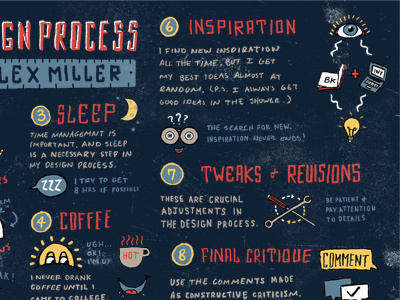 IGN PROCESS
LEX MILLER
3 SLEEP
TIME MANAGEMENT IS
IMPORTANT, AND SLEEP
IS A NECESSARY STEP IN
MY DESIGN PROCESS.
ZZZ
I TRY TO GET
8 HRS IF POSSIBLE
4 COFFEE
UGH...
OK!
I'M UP
HOT
I NEVER DRANK
COFFEE UNTIL I
CAME TO COLLEGE.
6 INSPIRATION
I FIND NEW INSPIRATION
ALL THE TIME, BUT I GET
MY BEST IDEAS ALMOST AT
RANDOM. (P.S. I ALWAYS GET
GOOD IDEAS IN THE SHOWER.)
BK
+
INT
???
THE SEARCH FOR NEW
INSPIRATION NEVER ENDS!
7 TWEAKS + REVISIONS
THESE ARE CRUCIAL
ADJUSTMENTS IN
THE DESIGN PROCESS.
BE PATIENT &
PAY ATTENTION
TO DETAILS
8 FINAL CRITIQUE
COMMENT
USE THE COMMENTS MADE
AS CONSTRUCTIVE CRITICISM.